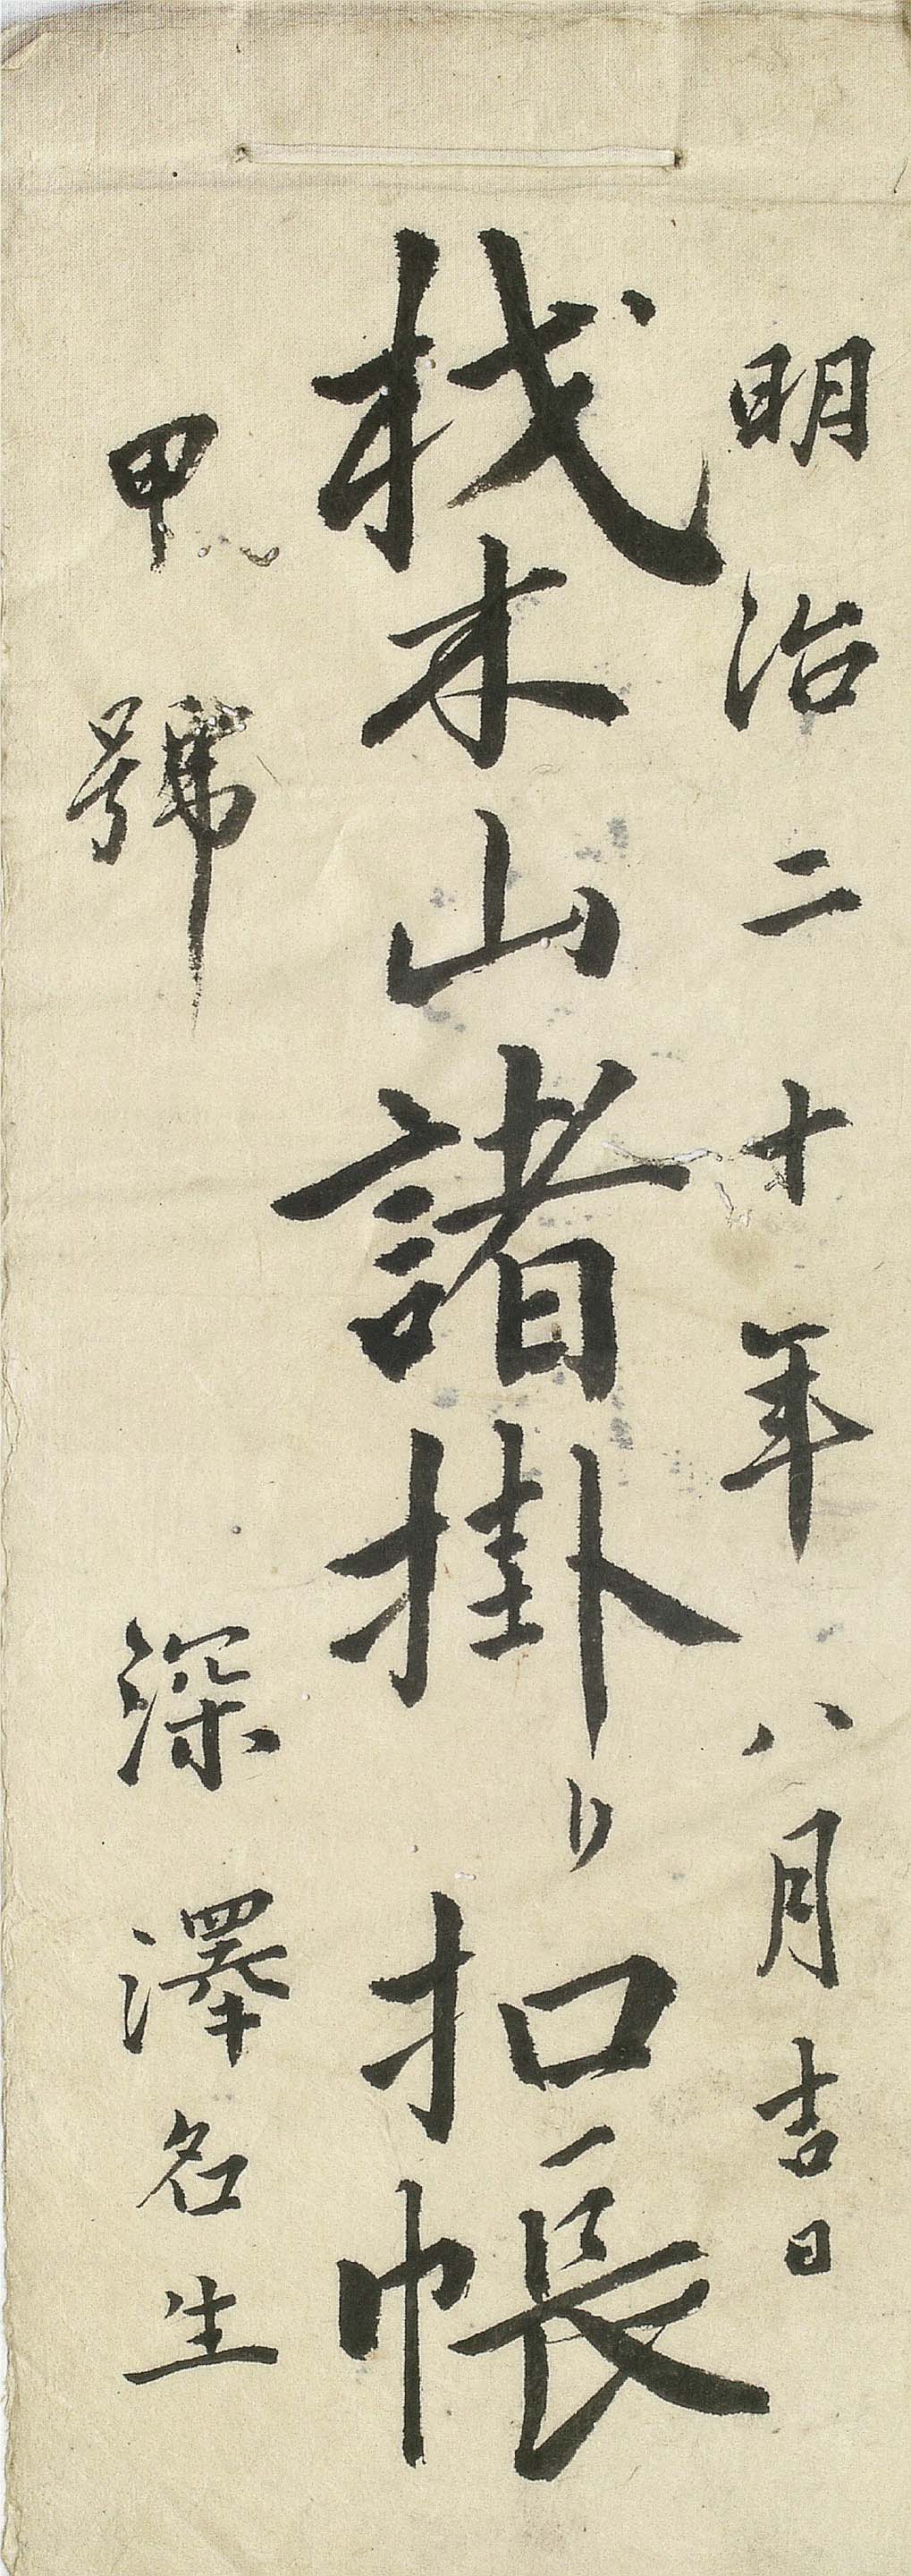 明治二十年八月吉日
杙木山諸掛り扣帳
甲號
深澤名生